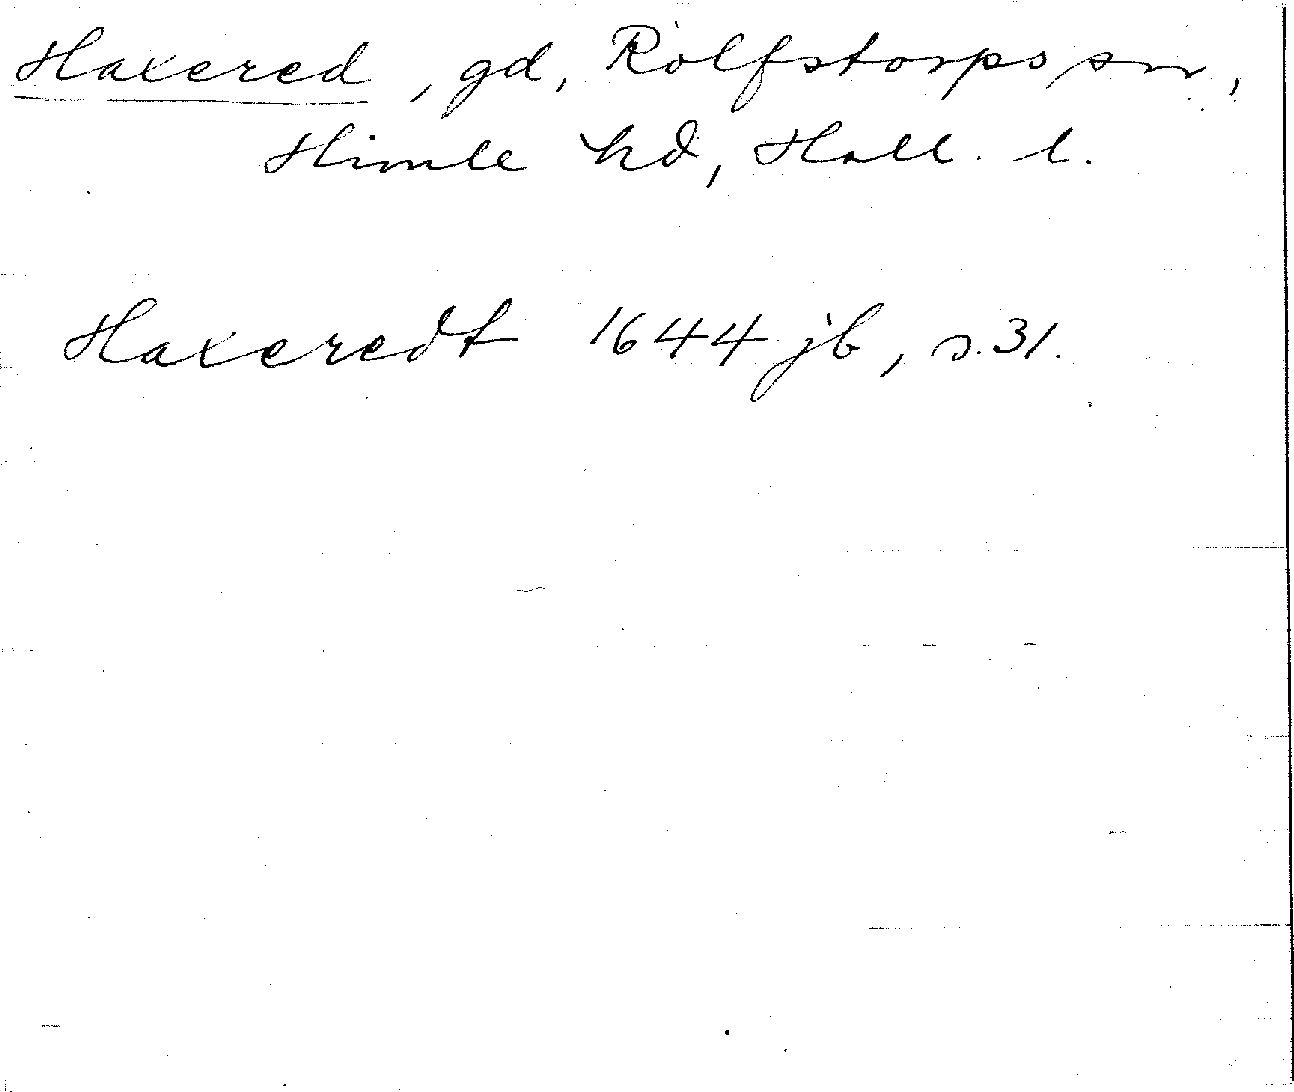 Haxered, gd, Rolfstorps sn,
Himle hd, Hall. l.
Haxeredt 1644 jb, s. 31.